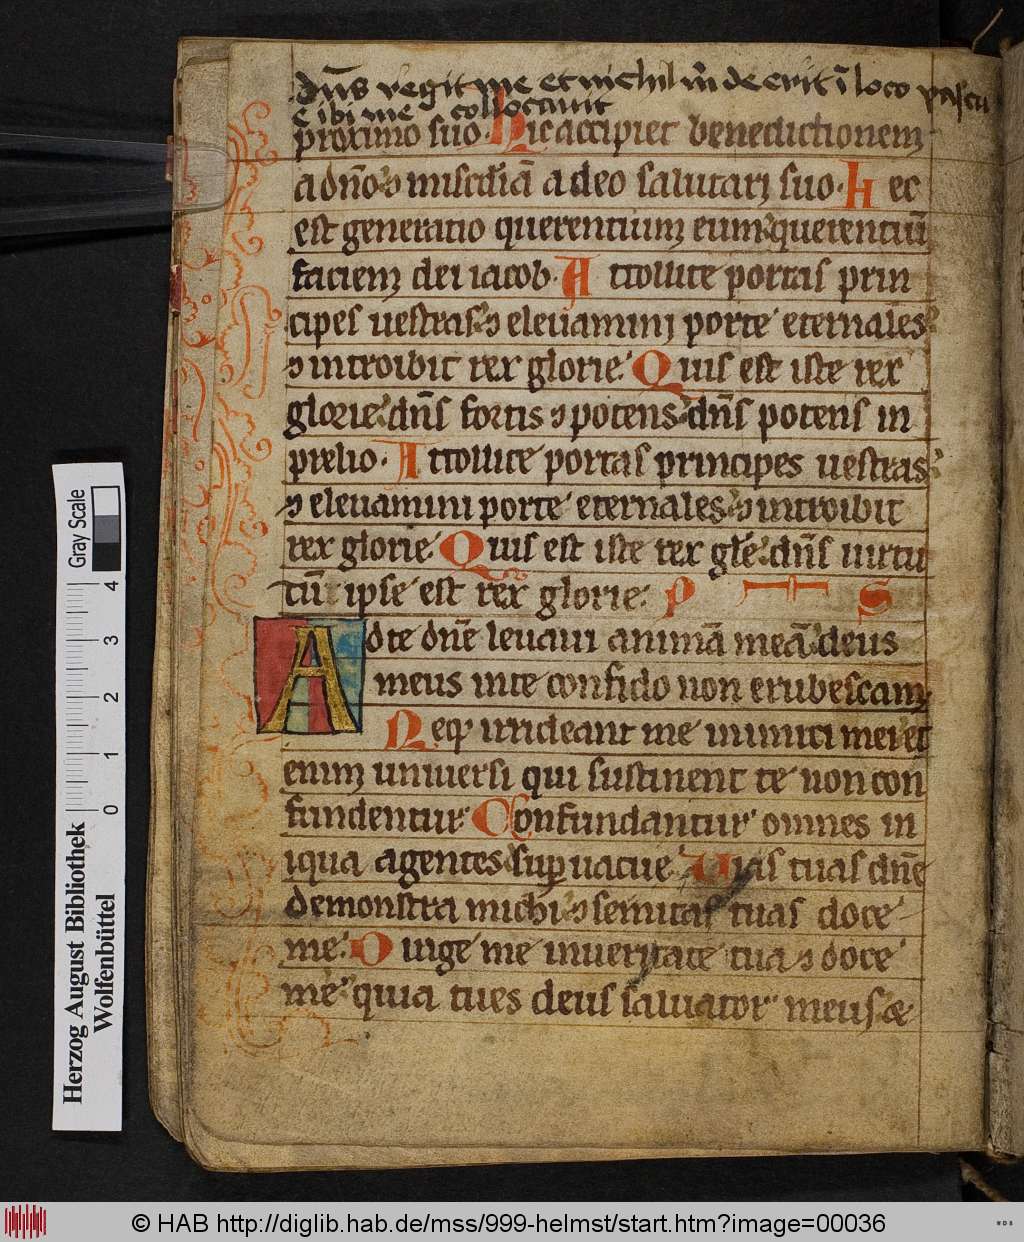 dn̄s regit me et nichil m̄ de erit ī loco pascu
e ibi me collocauit
proximo suo. Hic accipiet benedictionem
a dn̄o ⁊ misc̄diā a deo salutari suo. Hec
est generatio querentium eum querentiū
faciem dei iacob. Attollite portas prin
cipes uestras ⁊ eleuamini porte eternales
⁊ introibit rex glorie. Quis est iste rex
glorie dn̄s fortis ⁊ potens dn̄s potens in
prelio. Attollite portas principes uestras
⁊ eleuamini porte eternales ⁊ introibit
rex glorie. Quis est iste rex gl̄e dn̄s uirtu
tū ipse est rex glorie. P S
Ad te dn̄e leuaui animā meā deus
meus in te confido non erubescam
Neq; irrideant me inimici mei et
enim uniuersi qui sustinent te non con
fundentur. Confundantur omnes in
iqua agentes sup̱uacue. Uias tuas dn̄e
demonstra michi ⁊ semitas tuas doce
me. Dirige me in ueritate tua ⁊ doce
me quia tu es deus saluator meus &
Gray Scale
0 1 2 3 4
Herzog August Bibliothek
Wolfenbüttel
© HAB http://diglib.hab.de/mss/999-helmst/start.htm?image=00036